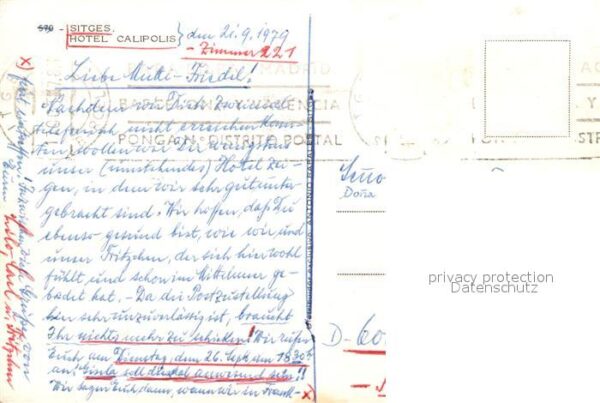 570 - SITGES.
HOTEL CALIPOLIS
den 21.9.1979
- Zimmer 221
Liebe Mutti - Friedel!
Nachdem wir Dich zweimal
telefonisch nicht erreichen konn-
ten, wollen wir Dir wenigstens
unser (umstehendes) Hotel zei-
gen, in dem wir sehr gut unter-
gebracht sind. Wir hoffen, daß Du
ebenso gesund bist, wie wir und
unser Fritzchen, der sich hier wohl
fühlt und schon im Mittelmeer ge-
badet hat. - Da die Postzustellung
hier sehr unzuverlässig ist, braucht
Ihr nichts mehr zu schicken! Wir rufen
Euch am Dienstag, den 26. Sept. um 18.30h
an! Gisela soll
anwesend sein!!
Wir sagen Euch dann, wann wir in Frank- x)
x)
furt eintreffen!
Grüße von
Lilo - Carl u. Fritzchen
MADRID
VALENCIA
PONGA
DISTRITO POSTAL
Y
STR
Seño
Doña
D-60
privacy protection
Datenschutz